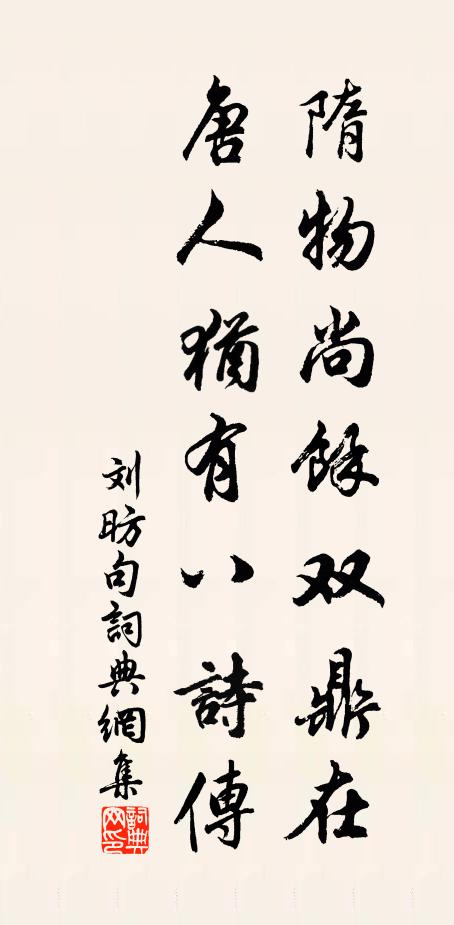 隋物尚餘双鼎在
唐人猶有八詩傳
刘昉句詞典網集
詞典
网印